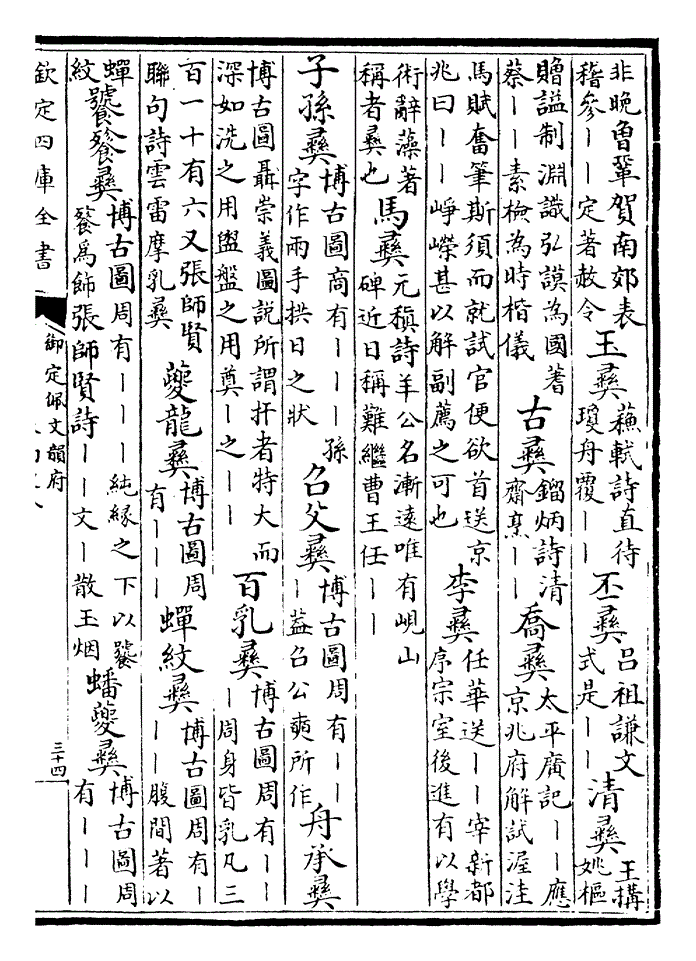 非晚魯鞏賀南郊表稽參｜｜定著赦令玉彝蘇軾詩直待瓊舟覆｜｜丕彝呂祖謙文式是｜｜清彝王構姚樞
贈諡制淵識弘謨為國蓍蔡｜｜素檢為時楷儀古彝鎦炳詩清齋烹｜｜喬彝太平廣記｜｜應京兆府解試渥洼
馬賦奮筆斯須而就試官便欲首送京兆曰｜｜崢嶸甚以解副薦之可也李彝任華送｜｜宰新都序宗室後進有以學
術辭藻著稱者彝也馬彝元稹詩羊公名漸遠唯有峴山碑近日稱難繼曹王任｜｜
子孫彝博古圖商有｜｜｜孫字作兩手拱日之狀召父彝博古圖周有｜｜｜蓋召公奭所作舟承彝
博古圖聶崇義圖說所謂扞者特大而深如洗之用盥盤之用奠｜之｜｜百乳彝博古圖周有｜｜｜周身皆乳凡三
百一十有六又張師賢聯句詩雲雷摩乳彝夔龍彝博古圖周有｜｜｜蟬紋彝博古圖周有｜｜｜腹間著以
蟬紋饕餮彝博古圖周有｜｜｜純緣之下以饕餮為飾張師賢詩｜｜文｜散玉烟蟠夔彝博古圖周有｜｜｜
欽定四庫全書
御定佩文韻府
三十四